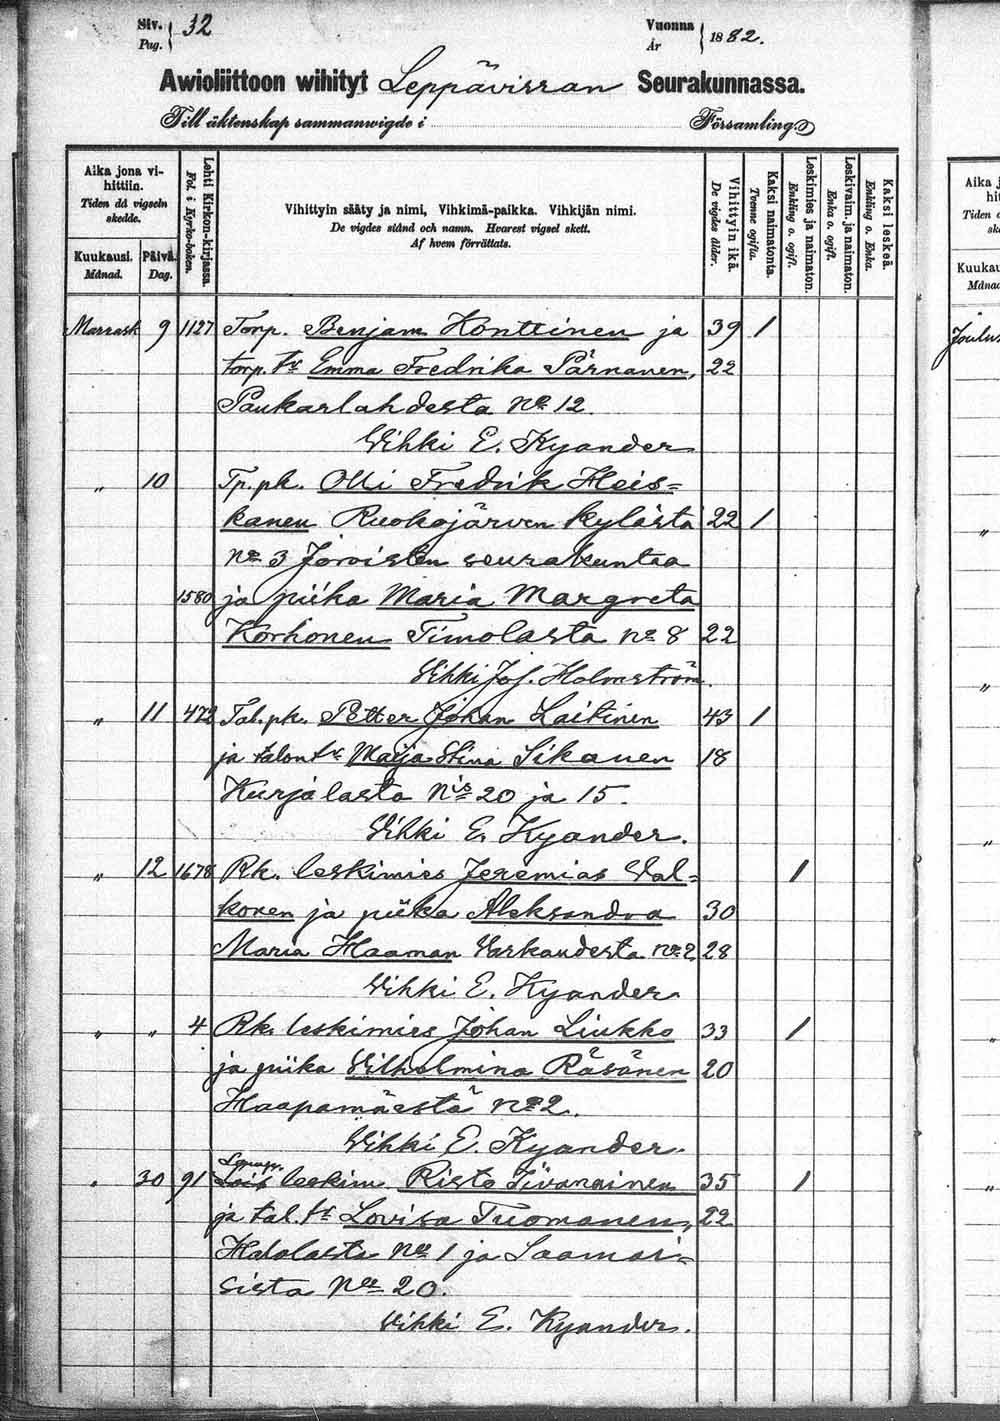 Siv. 32 Vuonna 1882.
Pag. År
Awioliittoon wihityt Leppävirran Seurakunnassa.
Till äktenskap sammanwigde i Församling.
Aika jona vihittiin.
Tiden då vigseln skedde.
Kuukausi. Månad.
Päivä. Dag.
Lehti Kirkon-kirjassa.
Fol. i Kyrko-boken.
Vihittyin sääty ja nimi, Vihkimä-paikka. Vihkijän nimi.
De vigdes stånd och namn. Hvarest vigsel skett.
Af hvem förrättats.
Vihittyin ikä.
De vigdes ålder.
Kaksi naimatonta.
Tvenne ogifta.
Leskimies ja naimaton.
Enkling o. ogift.
Leskivaim. ja naimaton.
Enka o. ogift.
Kaksi leskeä.
Enkling o. Enka.
Marrask 9 1127 Torp. Benjam Honttinen ja 39 1
torp. tr Emma Fredrika Pärnänen, 22
Paukarlahdesta No 12.
Vihki E. Kyander
„ 10 Tp. pk. Olli Fredrik Heis=
kanen Ruokojärven kylästä 22 1
No 3 Joroisten seurakuntaa
1580 ja piika Maria Margreta
Korhonen Timolasta no 8 22
Vihki Jof. Holmström.
„ 11 472 Tal. pk. Petter Johan Laitinen 43 1
ja talon tr Maija Stina Sikanen 18
Kurjalasta Nis 20 ja 15.
Vihki E. Kyander.
„ 12 1678 Rk. leskimies Jeremias Val= 1
konen ja piika Aleksandra 30
Maria Haaman Varkaudesta No 2 28
Vihki E. Kyander.
„ „ 4 Rk. leskimies Johan Liukko 33 1
ja piika Vilhelmina Räsänen 20
Haapamäestä No 2.
Vihki E. Kyander.
„ 30 91 leskim. Risto Tiivanainen 35 1
ja tal. tr Lovisa Tuomanen, 22
No 1 ja Saamai=
sista No 20.
Vihki E. Kyander.
Aika j
Tiden
Kuukau
Månad
Joulu
„
„
„
„
„